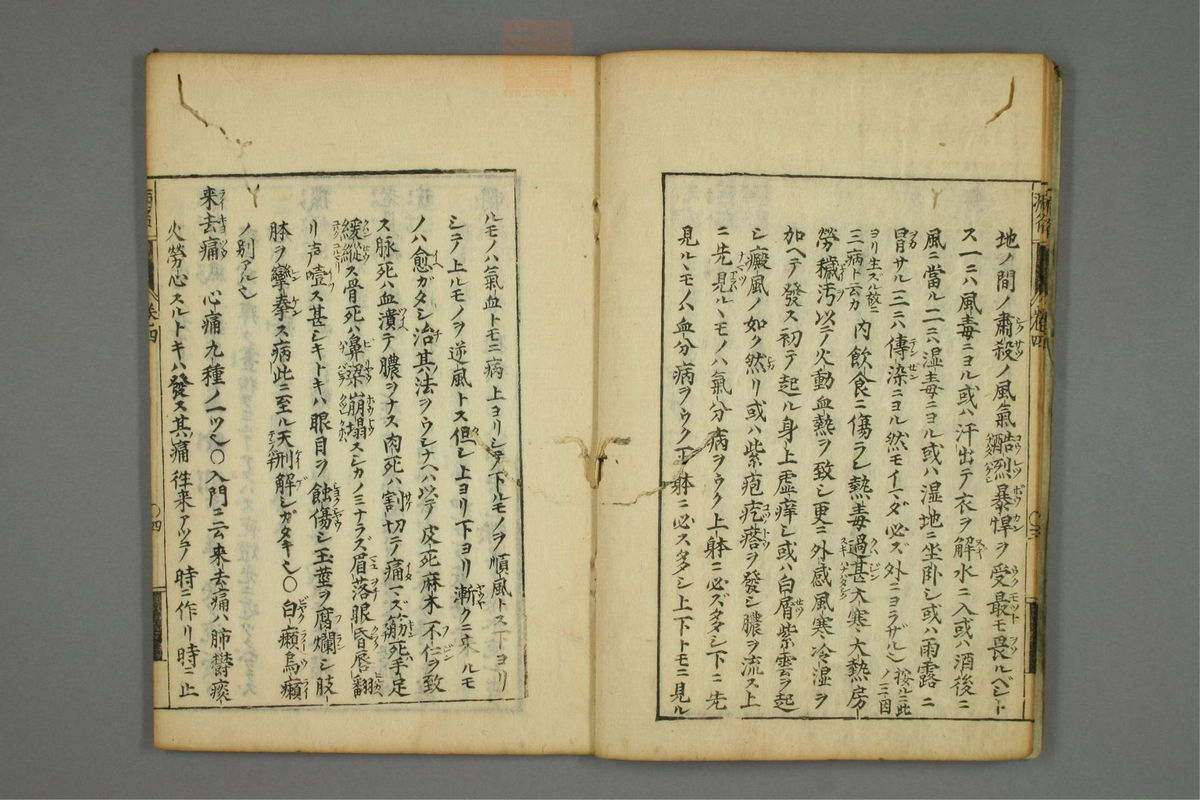 地ノ間ノ肅殺ノ風氣酷烈暴悍ヲ受最モ畏ルベシト
ス一ニハ風毒ニヨル或ハ汗出テ衣ヲ解水ニ入或ハ酒後ニ
風ニ當ル二ニハ湿毒ニヨル或ハ湿地ニ坐臥シ或ハ雨露ニ
冒サル三ニハ傳染ニヨル然モイマダ必ズ外ニヨラザル也 按ルニ此ノ三因
ヨリ生スル故ニ三病ト云カ 内飲食ニ傷ラレ熱毒過甚大寒大熱房
勞穢汚以テ火動血熱ヲ致シ更ニ外感風寒冷湿ヲ
加ヘテ發ス初テ起ル身上虚痒シ或ハ白屑紫雲ヲ起
シ癜風ノ如ク然リ或ハ紫疱疙瘩ヲ發シ膿ヲ流ス上
ニ先見ルヽモノハ氣分病ヲウク上躰ニ必ズ多シ下ニ先
見ルヽモノハ血分病ヲウク下躰ニ必ス多シ上下トモニ見ル
ルモノハ氣血トモニ病上ヨリシテ下ルモノヲ順風トス下ヨリ
シテ上ルモノヲ逆風トス但シ上ヨリ下ヨリ漸クニ来ルモ
ノハ愈ガタシ治其法ヲウシナヘハ以テ皮死麻木不仁ヲ致
ス脉死ハ血潰テ膿ヲナス肉死ハ割切テ痛マズ筋死手足
緩縦ス骨死ハ鼻梁崩塌スシカノミナラズ眉落眼昏唇翻
リ声噎ス甚シキトキハ眼目ヲ蝕傷シ玉莖ヲ腐爛シ肢
躰ヲ攣拳ス病此ニ至ル天刑解シガタキ也〇白癩烏癩
ノ別アル也
来去痛 心痛九種ノ一ツ也〇入門ニ云来去痛ハ肺鬱痰
火勞心スルトキハ發ス其痛徃来アツテ時ニ作リ時ニ止
卷四
〇三
卷四
〇四